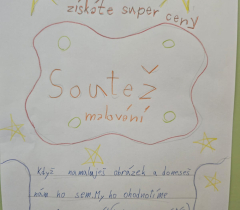 získáte super ceny
Soutěž
malování
Když namaluješ obrázek a doneseš
nám ho sem. My ho ohodnotíme